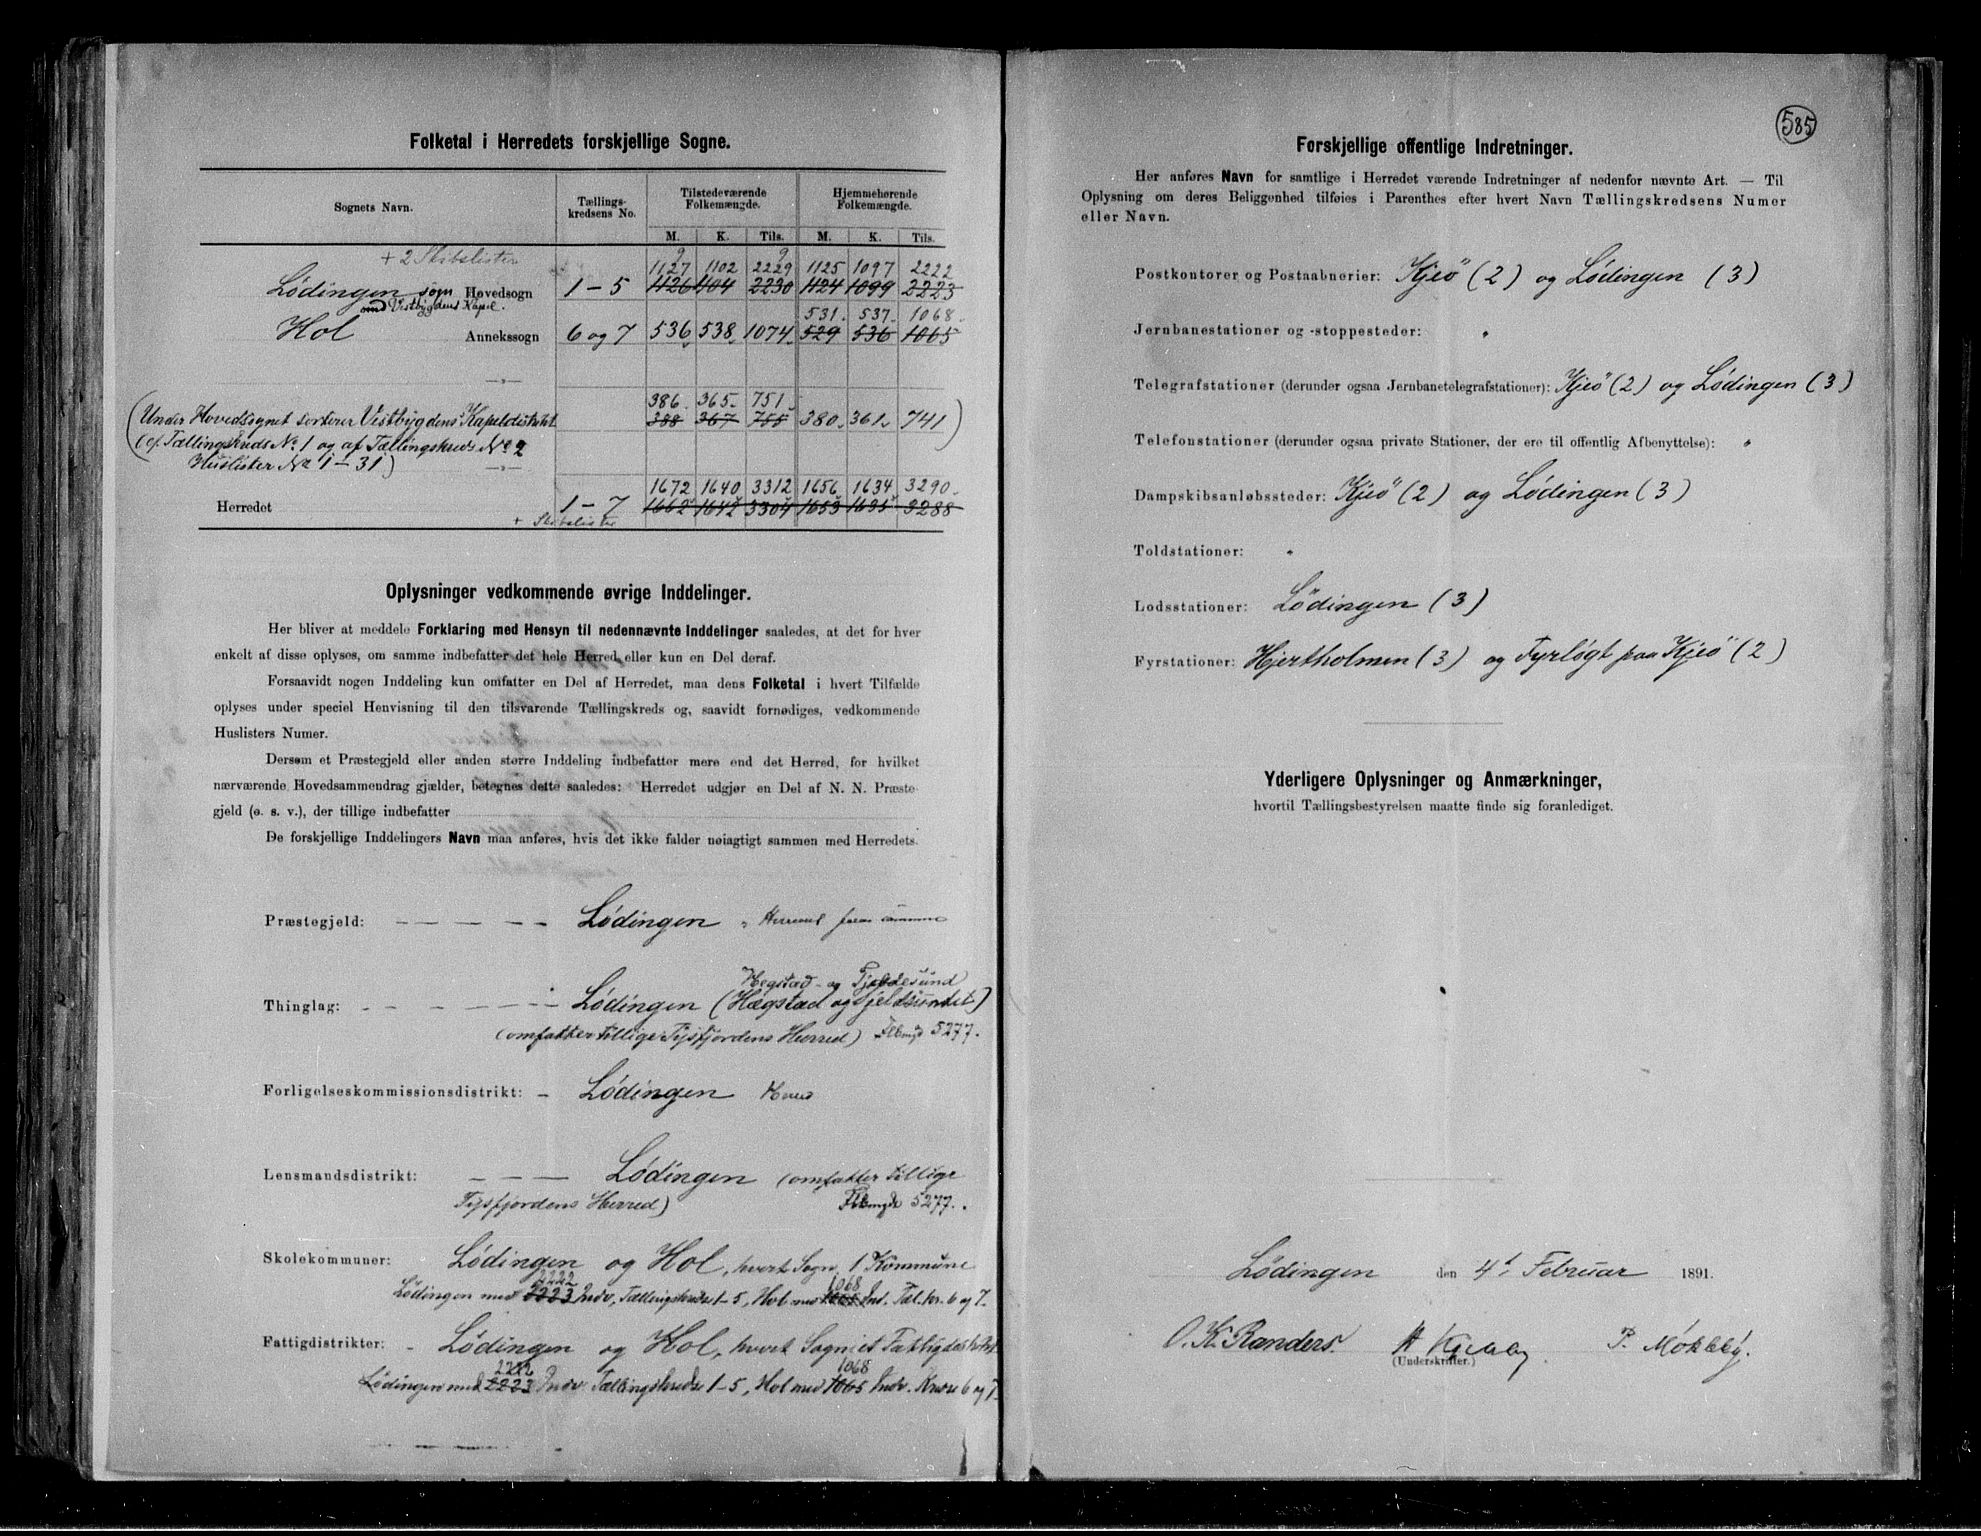 Folketal i Herredets forskjellige Sogne.
Sognets Navn. Tællings-kredsens No. Tilstedeværende Folkemængde. Hjemmehørende Folkemængde.
M. K. Tils. M. K. Tils.
9 9
+ 2 Skibslister 1127 1102 2229 1125 1097 2222
Lódingen sogn Hovedsogn 1–5 1126 1104 2230 1124 1099 2223
med Vestbygdens Kapel. 531. 537. 1068.
Hol Annekssogn 6 og 7 536 538 1074 529 536 1065
—„—
386. 365. 751
(Under Hovedsognet sorterer Vestbygdens Kapeldistrikt 388 367 755 380 361 741)
(cf. Tællingskreds No. 1 og af Tællingskreds No 2
Huslister No 1–31) —„—
1672 1640 3312 1656 1634 3290
Herredet 1–7 1662 1642 3304 1653 1635 3288
+ Skibslister
Oplysninger vedkommende øvrige Inddelinger.
Her bliver at meddele Forklaring med Hensyn til nedennævnte Inddelinger saaledes, at det for hver
enkelt af disse oplyses, om samme indbefatter det hele Herred eller kun en Del deraf.
Forsaavidt nogen Inddeling kun omfatter en Del af Herredet, maa dens Folketal i hvert Tilfælde
oplyses under speciel Henvisning til den tilsvarende Tællingskreds og, saavidt fornødiges, vedkommende
Huslisters Numer.
Dersom et Præstegjeld eller anden større Inddeling indbefatter mere end det Herred, for hvilket
nærværende Hovedsammendrag gjælder, betegnes dette saaledes: Herredet udgjør en Del af N. N. Præste-
gjeld (o. s. v.), der tillige indbefatter
De forskjellige Inddelingers Navn maa anføres, hvis det ikke falder nøiagtigt sammen med Herredets.
Præstegjeld: – – – – – Lódingen
Hegstad- og Tjeldesund
Thinglag: – – – – – Lódingen (Hægstad og Tjeldsundet)
(omfatter tillige Tysfjordens Herred) Flkmgd 5277.
Forligelseskommissionsdistrikt: – Lódingen Herred
Lensmandsdistrikt: – – — Lódingen (omfatter tillige
Tysfjordens Herred) Flkmgde 5277.
Skolekommuner: Lódingen og Hol, hvert Sogn 1 Kommune
2222 1068
Lódingen med 2223 Indv, Tællingskredse 1–5, Hol med 1065 Ind. Tæl. kr. 6 og 7.
Fattigdistrikter: – Lódingen og Hol, hvert Sogn et Fattigdistrikt
2222 1068
Lódingen med 2223 Indv Tællingskredse 1–5, Hol med 1065 Indv. Kredse 6 og 7.
585
Forskjellige offentlige Indretninger.
Her anføres Navn for samtlige i Herredet værende Indretninger af nedenfor nævnte Art. — Til
Oplysning om deres Beliggenhed tilføies i Parenthes efter hvert Navn Tællingskredsens Numer
eller Navn.
Postkontorer og Postaabnerier: Kjeö (2) og Lódingen (3)
Jernbanestationer og -stoppesteder: „
Telegrafstationer (derunder ogsaa Jernbanetelegrafstationer): Kjeö (2) og Lódingen (3)
Telefonstationer (derunder ogsaa private Stationer, der ere til offentlig Afbenyttelse): „
Dampskibsanløbssteder: Kjeö (2) og Lódingen (3)
Toldstationer: „
Lodsstationer: Lódingen (3)
Fyrstationer: Hjertholmen (3) og Fyrlógt paa Kjeö (2)
Yderligere Oplysninger og Anmærkninger,
hvortil Tællingsbestyrelsen maatte finde sig foranlediget.
Lódingen den 4de Februar 1891.
O. K. Randers. P. Mókkby.
(Underskrifter.)